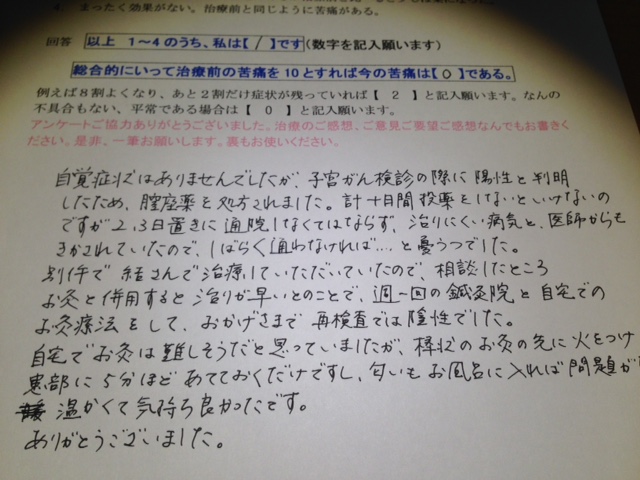 4. まったく効果がない。治療前と同じように苦痛がある。
回答 以上 1～4のうち、私は【 / 】です(数字を記入願います)
総合的にいって治療前の苦痛を10とすれば今の苦痛は【 0 】である。
例えば8割よくなり、あと2割だけ症状が残っていれば【 2 】と記入願います。なんの
不具合もない、平常である場合は【 0 】と記入願います。
アンケートご協力ありがとうございました。治療のご感想、ご意見ご要望ご感想なんでもお書きく
ださい。是非、一筆お願いします。裏もお使いください。
自覚症状はありませんでしたが、子宮がん検診の際に陽性と判明
したため、膣座薬を処方されました。計十日間投薬をしないといけないの
ですが2,3日置きに通院しなくてはならず、治りにくい病気と、医師からも
きかされていたので、しばらく通わなければ…。と憂うつでした。
別件で 結さんで治療していただいていたので、相談したところ
お灸と併用すると治りが早いとのことで、週一回の鍼灸院と自宅での
お灸療法をして、おかげさまで 再検査では陰性でした。
自宅でお灸は難しそうだと思っていましたが、棒状のお灸の先に火をつけ
患部に5分ほどあてておくだけですし、匂いもお風呂に入れば問題が
温かくて気持ち良かったです。
ありがとうございました。